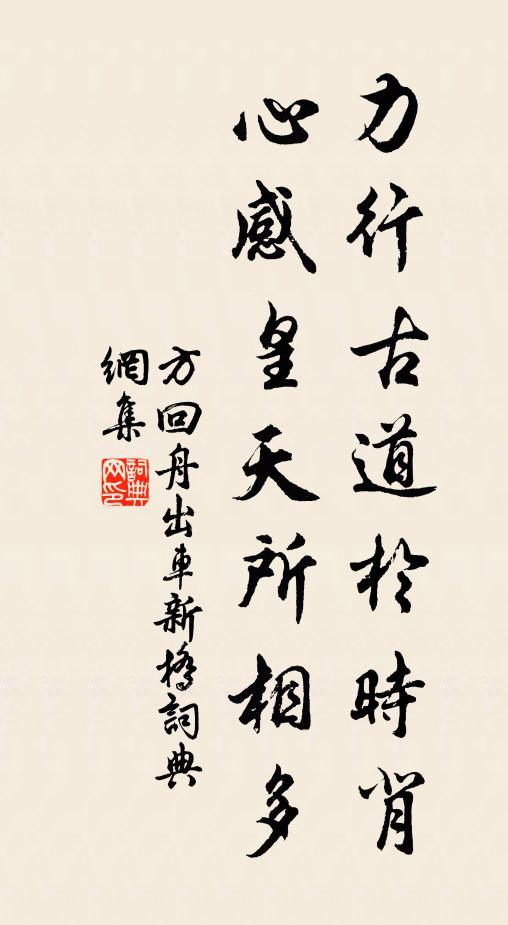 力行古道於時背
心感皇天所相多
方回舟出車新橋詞典
網集
詞典
网印